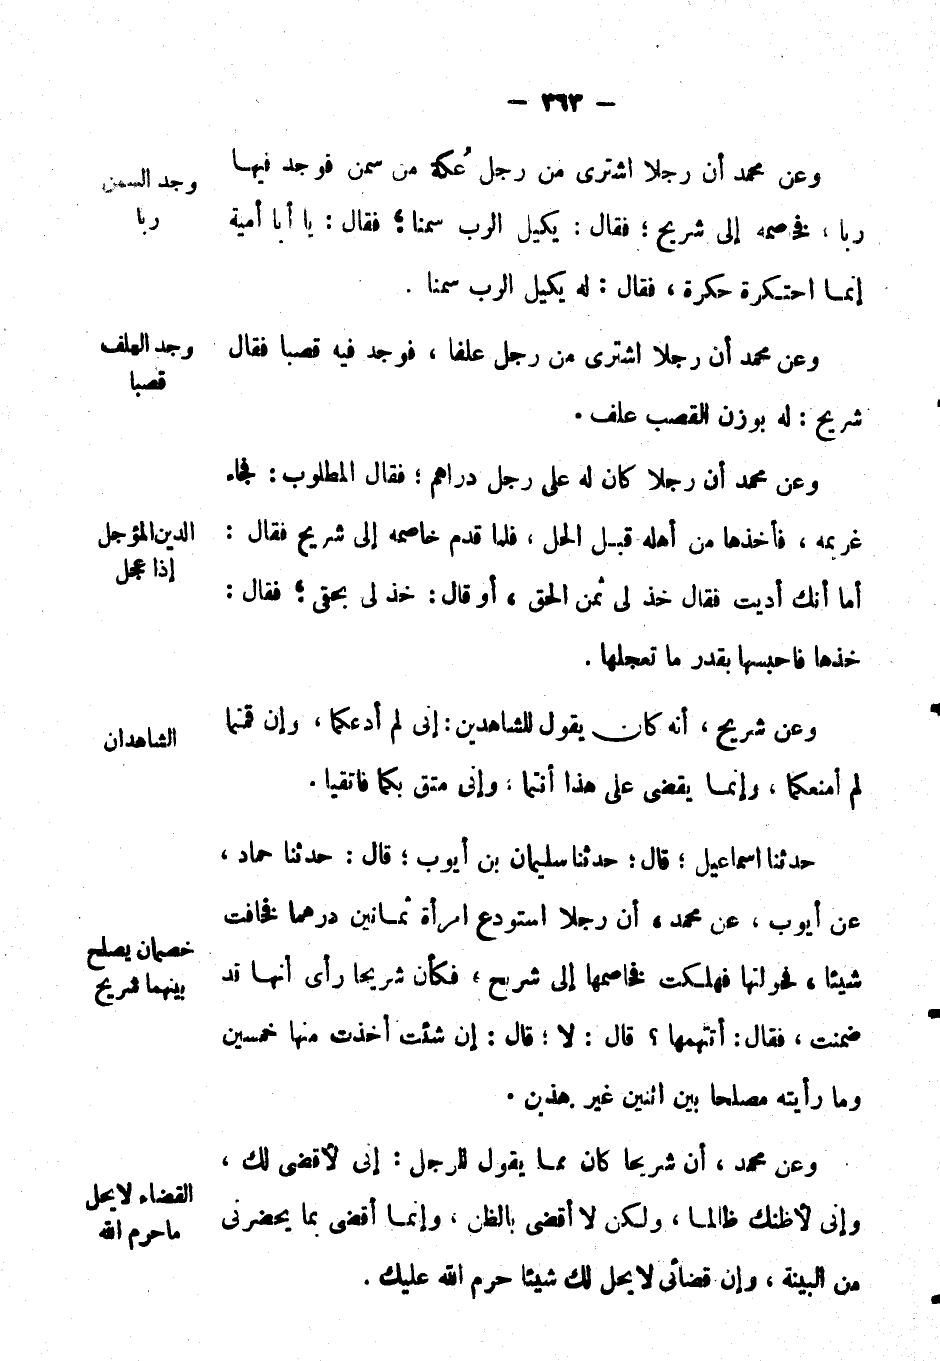 — ٣٦٣ —
وعن محمد أن رجلا اشترى من رجل عُكة من سمن فوجد فيهـا
وجد السمن
ربا ، فخاصمه إلى شريح ؛ فقال : يكيل الرب سمنا؛ فقال : يا أبا أمية
ربا
إنمـا احتـكرة حكرة ، فقال : له يكيل الرب سمنا .
وعن محمد أن رجلا اشترى من رجل علفا ، فوجد فيه قصبا فقال
وجد العلف
قصبا
شريح : له بوزن القصب علف .
وعن محمد أن رجلا كان له على رجل دراهم ؛ فقال المطلوب : فجاء
غريمه ، فأخذها من أهله قبـل الحل ، فلما قدم خاصمه إلى شريح فقال :
الدين المؤجل
إذا عجل
أما أنك أديت فقال خذ لى ثمن الحق ، أو قال : خذ لى بحقى ؛ فقال :
خذها فاحبسها بقدر ما تعجلها .
وعن شريح ، أنه كان يقول للشاهدين : إنى لم أدعكما ، وإن قمتما
الشاهدان
لم أمنعكما ، وإنمـا يقضى على هذا أنتما ، وإنى متق بكما فاتقيا .
حدثنا اسماعيل ؛ قال : حدثنا سليمان بن أيوب ؛ قال : حدثنا حماد ،
عن أيوب ، عن محمد ، أن رجلا استودع امرأة ثمـانين درهما فخافت
شيئا ، فحولتها فهلـكت فخاصمها إلى شريح ؛ فـكأن شريحا رأى أنهـا قد
خصمان يصلح
بينهما شريح
ضمنت ، فقال : أتتهمها ؟ قال : لا ؛ قال : إن شئت أخذت منها خمسين
وما رأيته مصلحا بين اثنين غير هذين .
وعن محمد ، أن شريحا كان ممـا يقول للرجل : إنى لأقضى لك ،
وإنى لأظنك ظالمـا ، ولـكن لا أقضى بالظن ، وإنمـا أقضى بما يحضرنى
القضاء لا يحل
ما حرم الله
من البينة ، وإن قضائى لا يحل لك شيئا حرم الله عليك .